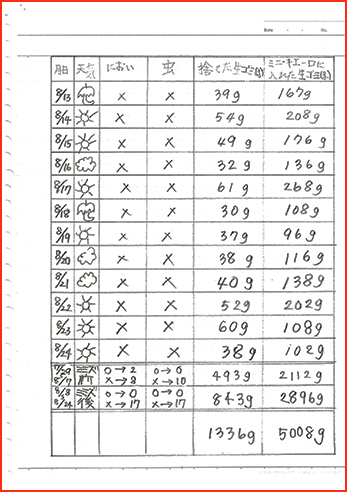 Date ・ ・ No.
月日 天気 におい 虫 捨てた生ゴミ(g) ミニ・キエーロに入れた生ゴミ(g)
8/13 × × 39g 167g
8/14 × × 54g 208g
8/15 × × 49g 176g
8/16 × × 32g 136g
8/17 × × 61g 268g
8/18 × × 30g 108g
8/19 × × 37g 96g
8/20 × × 38g 116g
8/21 × × 40g 138g
8/22 × × 52g 202g
8/23 × × 60g 108g
8/24 × × 38g 102g
ミズ ○→2 ○→0 493g 2112g
8/7 前 ×→8 ×→10
8/8 ミズ ○→0 ○→0 843g 2896g
8/24 後 ×→17 ×→17
1336g 5008g